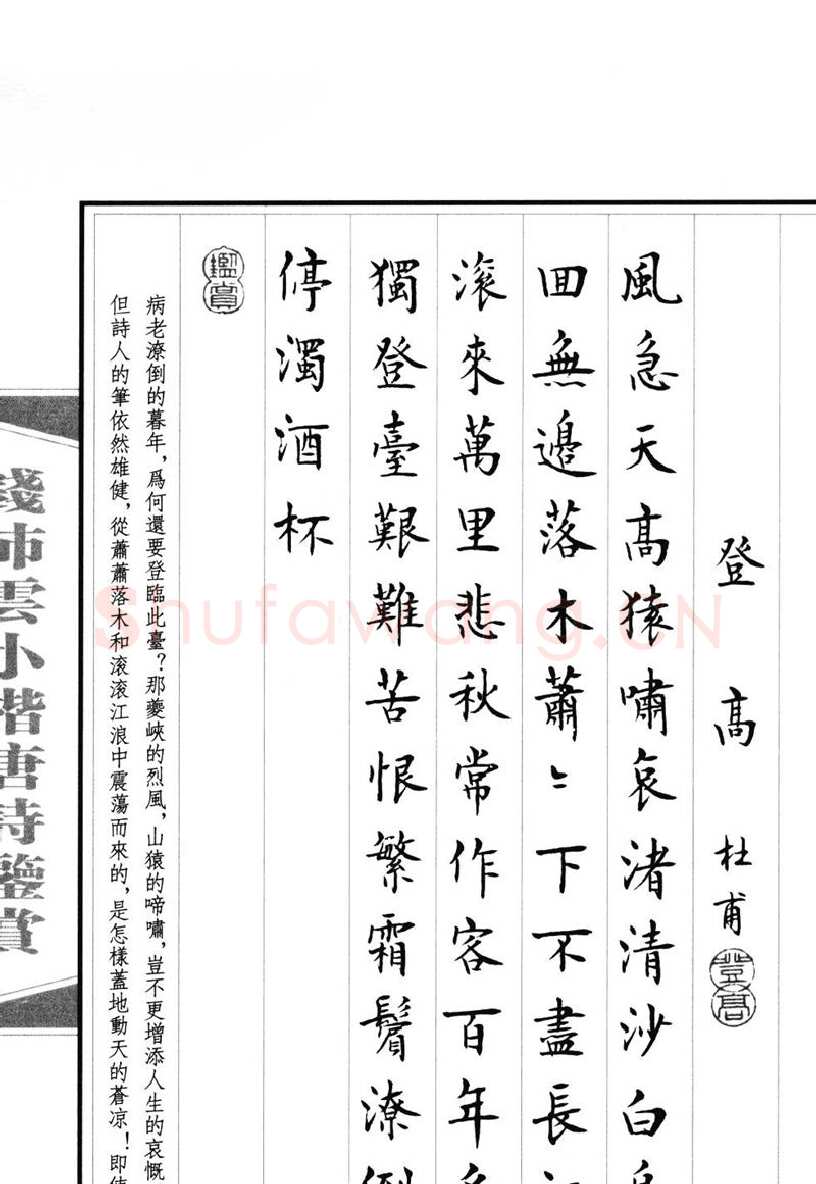 登高 杜甫
登高
風急天高猿嘯哀渚清沙白
回無邊落木蕭〻下不盡長
滾來萬里悲秋常作客百年
獨登臺艱難苦恨繁霜鬢潦倒
停濁酒杯
鑑賞
病老潦倒的暮年，爲何還要登臨此臺？那夔峽的烈風，山猿的啼嘯，豈不更增添人生的哀慨
但詩人的筆依然雄健，從蕭蕭落木和滚滚江浪中震蕩而來的，是怎樣蓋地動天的蒼凉！即使
錢沛雲小楷唐詩鑒賞
Shufawang.CN